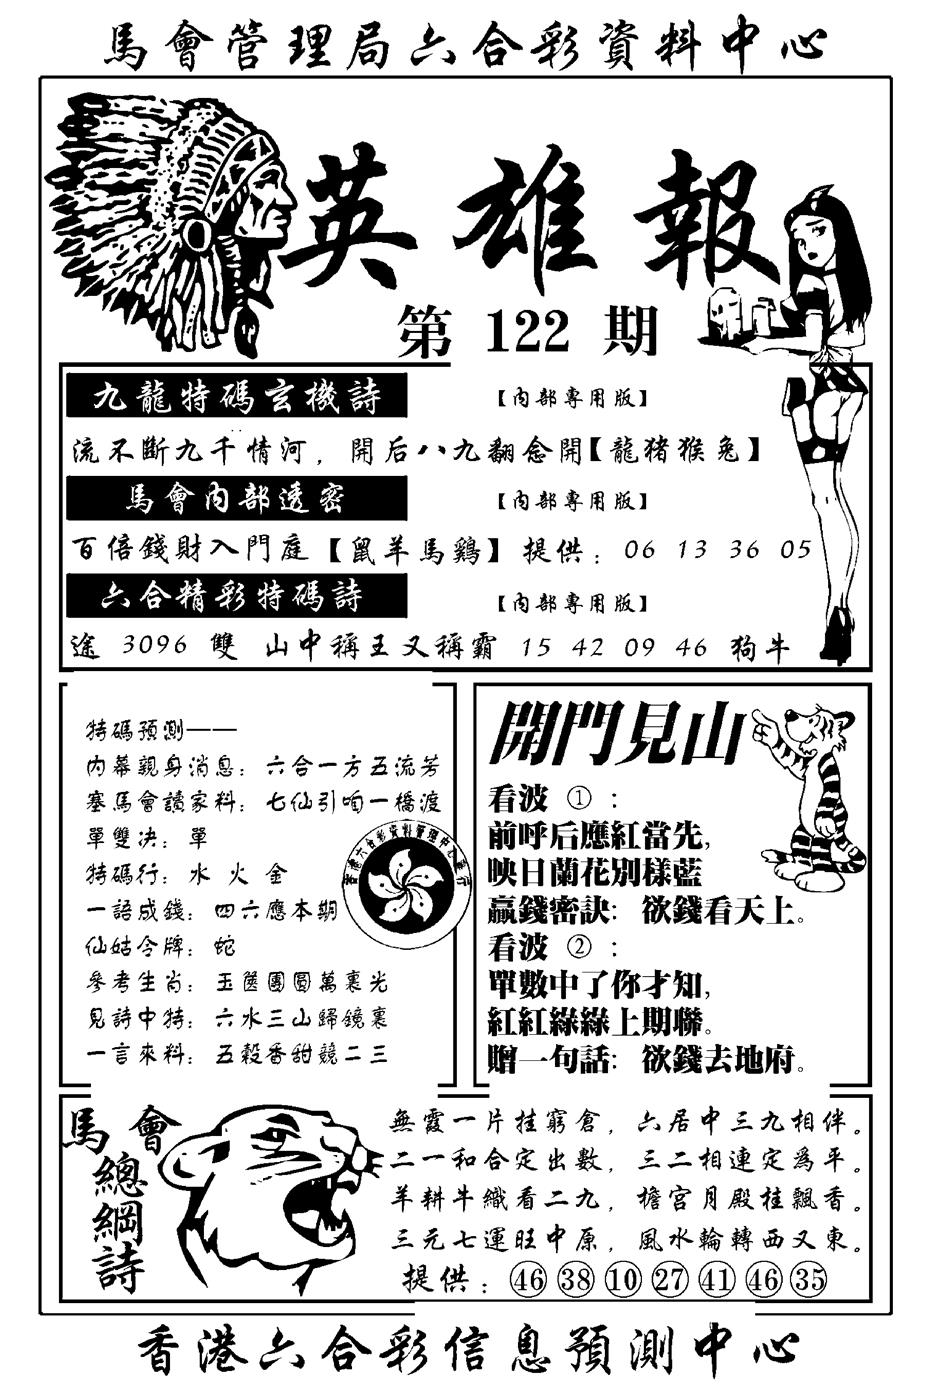 馬會管理局六合彩資料中心
英雄報
第 122 期
九龍特碼玄機詩 【內部專用版】
流不斷九千情河，開后八九翻念開【龍猪猴兔】
馬會內部透密 【內部專用版】
百倍錢財入門庭【鼠羊馬鷄】提供：06 13 36 05
六合精彩特碼詩 【內部專用版】
途 3096 雙 山中稱王又稱霸 15 42 09 46 狗牛
特碼預測——
內幕親身消息：六合一方五流芳
塞馬會讀家料：七仙引咱一橋渡
單雙决：單
特碼行：水 火 金
一語成錢：四六應本期
仙姑令牌：蛇
參考生肖：玉篋團圓萬裏光
見詩中特：六水三山歸鏡裏
一言來料：五穀香甜競二三
開門見山
看波 ①：
前呼后應紅當先,
映日蘭花別樣藍
贏錢密訣：欲錢看天上。
看波 ②：
單數中了你才知,
紅紅綠綠上期聯。
贈一句話：欲錢去地府。
馬會
總綱詩
無霞一片挂窮倉，六居中三九相伴。
二一和合定出數，三二相連定為平。
羊耕牛織看二九，檐宮月殿桂飄香。
三元七運旺中原，風水輪轉西又東。
提供：㊻㊳⑩㉗㊶㊻㉟
香港六合彩信息預測中心